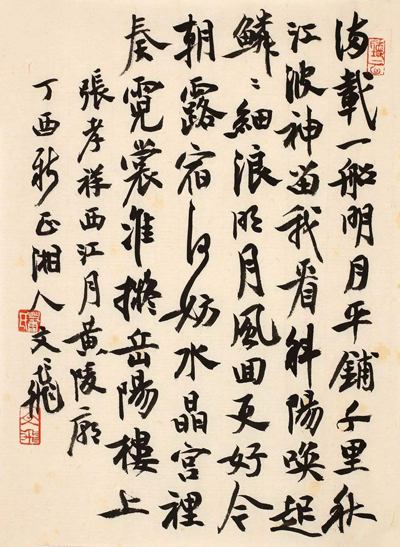 滿載一船明月平鋪千里秋
江波神留我看斜陽喚起
鱗〻細浪明月風回更好今
朝露宿何妨水晶宮裡
奏霓裳准擬岳陽樓上
張孝祥西江月黃陵廟
丁酉新正湘人文飛